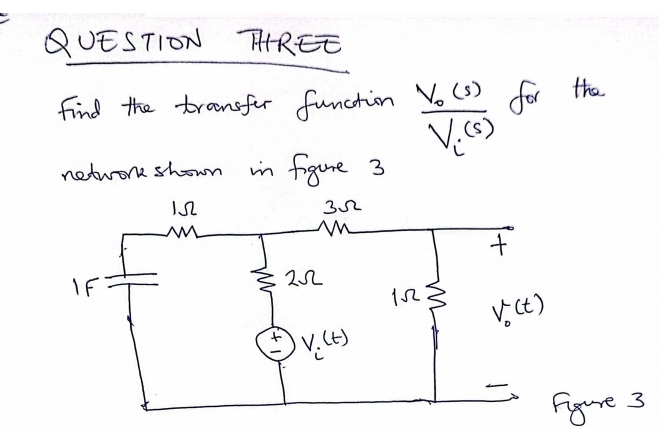 QUESTION THREE
Find the transfer function V₀(s)/Vᵢ(s) for the
network shown in figure 3
1Ω 3Ω
+
1F 2Ω 1Ω V₀(t)
+ - Vᵢ(t)
-
Figure 3